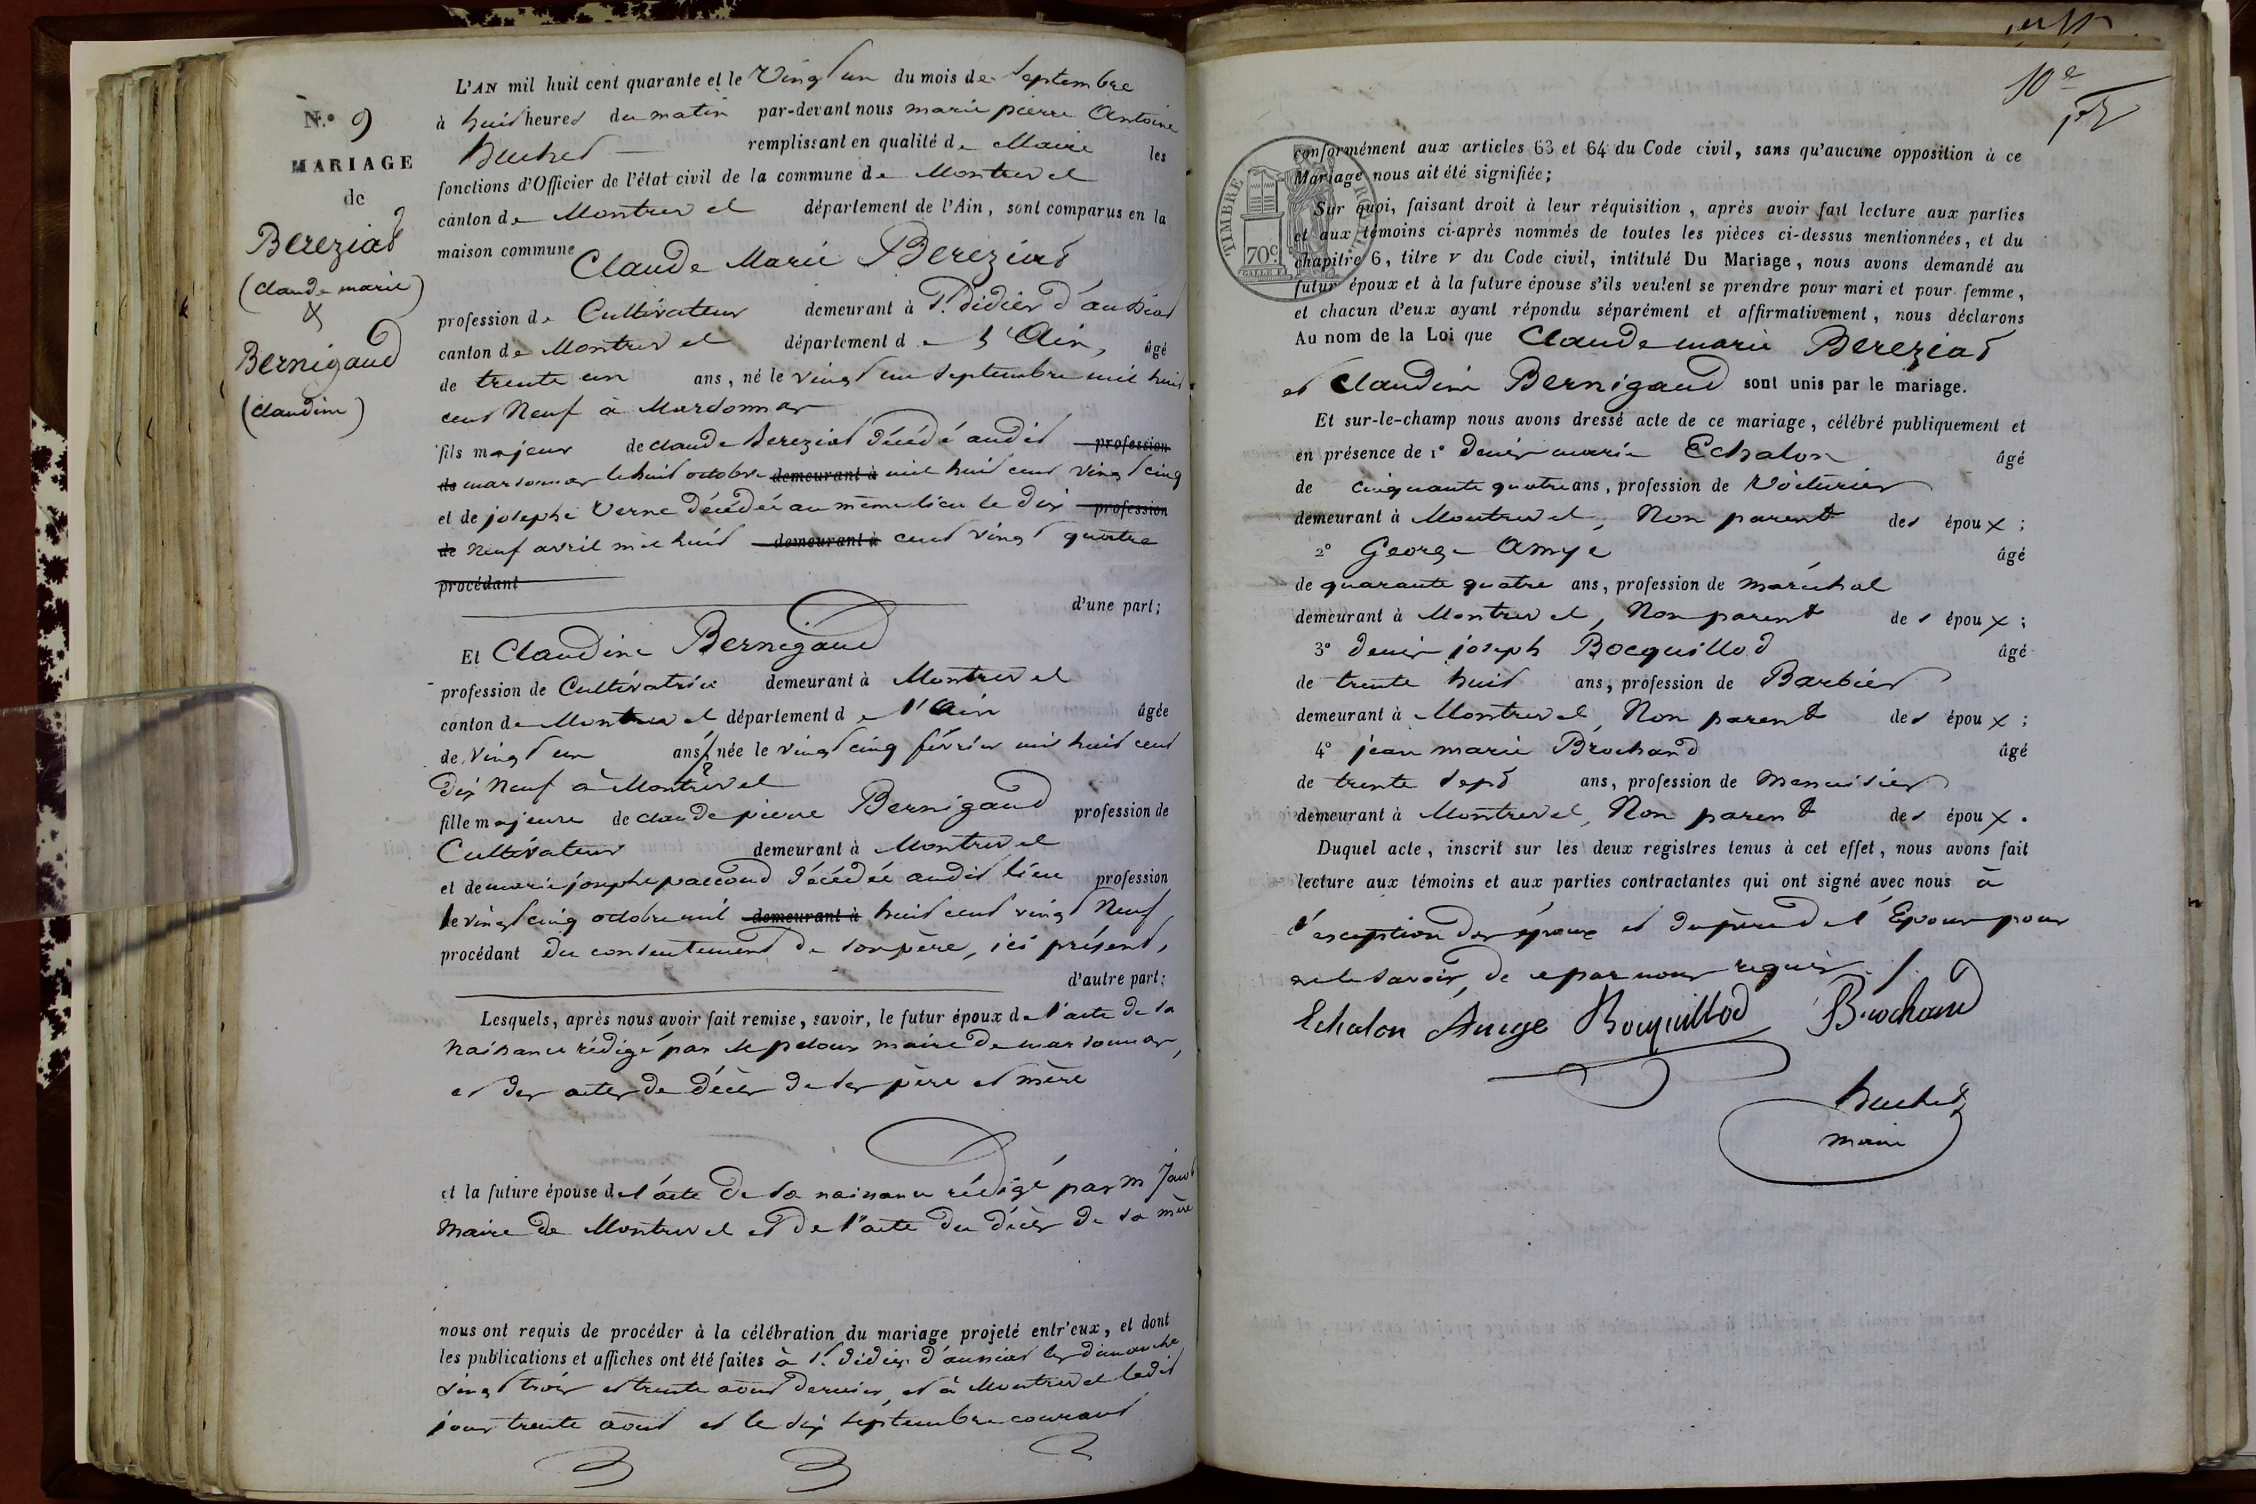 N.o 9
MARIAGE
de
Bereziat
(Claude marie)
&
Bernigaud
(Claudine)
L'AN mil huit cent quarante et le Vingt un du mois de Septembre
à huit heures du matin par-devant nous marie pierre Antoine
Buchet remplissant en qualité de Maire les
fonctions d'Officier de l'état civil de la commune de Montrevel
canton de Montrevel département de l'Ain, sont comparus en la
maison commune Claude Marie Bereziat
profession de Cultivateur demeurant à St. Didier d'aussiat
canton de Montrevel département de l'Ain, âgé
de trente un ans, né le vingt un Septembre mil huit
cent Neuf à Marsonnas
fils majeur de claude Bereziat décédé audit profession
de marsonnas le huit octobre demeurant à mil huit cent vingt cinq
et de josephe Verne décédée au même lieu le dix profession
de Neuf avril mil huit demeurant à cent vingt quatre
procédant
d'une part;
Et Claudine Bernigaud
profession de Cultivatrice demeurant à Montrevel
canton de Montrevel département de l'Ain âgée
de Vingt un ans, née le vingt cinq février mil huit cent
dix Neuf à Montrevel
fille majeure de claude pierre Bernigaud profession de
Cultivateur demeurant à Montrevel
et de marie josephe paccoud décédée audit lieu profession
le vingt cinq octobre mil demeurant à huit cent vingt Neuf
procédant du consentement de son père, ici présent,
d'autre part;
Lesquels, après nous avoir fait remise, savoir, le futur époux de l'acte de sa
naissance rédigé par M peloux maire de marsonnas,
et des actes de décès de ses père et mère
et la future épouse de l'acte de sa naissance rédigé par m
Maire de Montrevel et de l'acte du décès de sa mère
nous ont requis de procéder à la célébration du mariage projeté entr'eux, et dont
les publications et affiches ont été faites à St. Didier d'aussiat les dimanche
vingt trois et trente aout dernier, et à Montrevel ledit
jour trente aout et le six septembre courant
10e
TIMBRE
70c
conformément aux articles 63 et 64 du Code civil, sans qu'aucune opposition à ce
Mariage nous ait été signifiée;
Sur quoi, faisant droit à leur réquisition, après avoir fait lecture aux parties
et aux témoins ci-après nommés de toutes les pièces ci-dessus mentionnées, et du
chapitre 6, titre V du Code civil, intitulé Du Mariage, nous avons demandé au
futur époux et à la future épouse s'ils veulent se prendre pour mari et pour femme,
et chacun d'eux ayant répondu séparément et affirmativement, nous déclarons
Au nom de la Loi que Claude marie Bereziat
et Claudine Bernigaud sont unis par le mariage.
Et sur-le-champ nous avons dressé acte de ce mariage, célébré publiquement et
en présence de 1° Denis marie Echalon âgé
de cinquante quatre ans, profession de Voiturier
demeurant à Montrevel, Non parent des époux;
2° George Amye âgé
de quarante quatre ans, profession de maréchal
demeurant à Montrevel, Non parent des époux;
3° denis joseph Bocquillod âgé
de trente huit ans, profession de Barbier
demeurant à Montrevel, Non parent des époux;
4° jean marie Brochand âgé
de trente Sept ans, profession de Menuisier
demeurant à Montrevel, Non parent des époux.
Duquel acte, inscrit sur les deux registres tenus à cet effet, nous avons fait
lecture aux témoins et aux parties contractantes qui ont signé avec nous à
l'exception des époux et du père de l'Epouse pour
ne le savoir, de ce par nous requis
Echalon Bocquillod Brochand
Buchet
maire